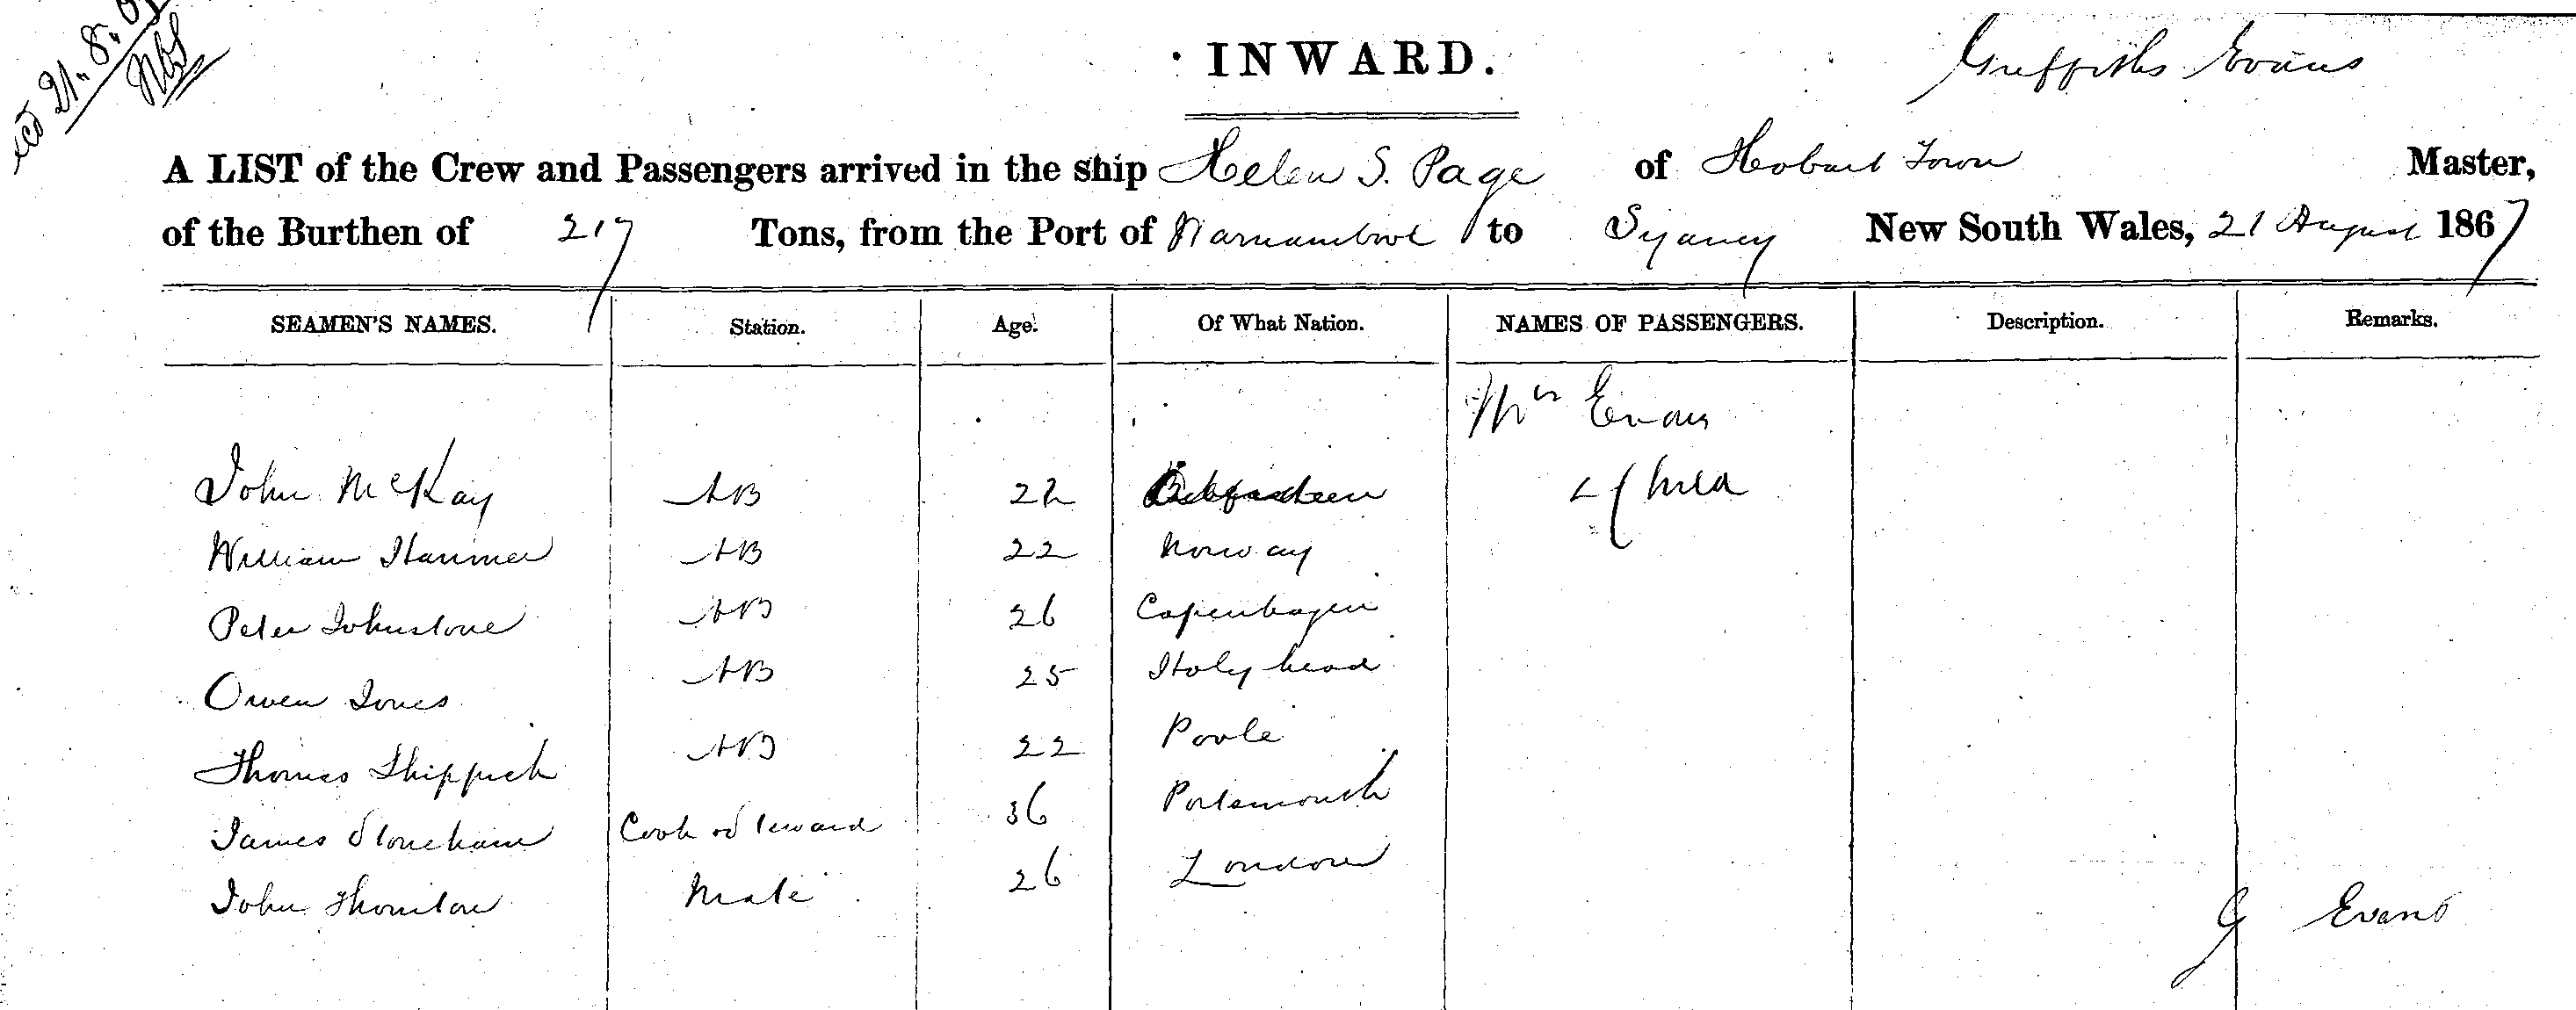 21. 8. 67
INWARD.
Griffiths Evans
A LIST of the Crew and Passengers arrived in the ship Helen S. Page of Hobart Town Master,
of the Burthen of 217 Tons, from the Port of Warnambool to Sydney New South Wales, 21 August 1867
SEAMEN'S NAMES. Station. Age. Of What Nation. NAMES OF PASSENGERS. Description. Remarks.
Mrs Evans
John McKay AB 22 & Child
William Hammer AB 22 Norway
Peter Johnstone AB 26 Copenhagen
Owen Jones AB 25 Holyhead
Thomas Shippick AB 22 Poole
James Stoneham Cook & Steward 36 Portsmouth
John Thornton Mate 26 London
G Evans